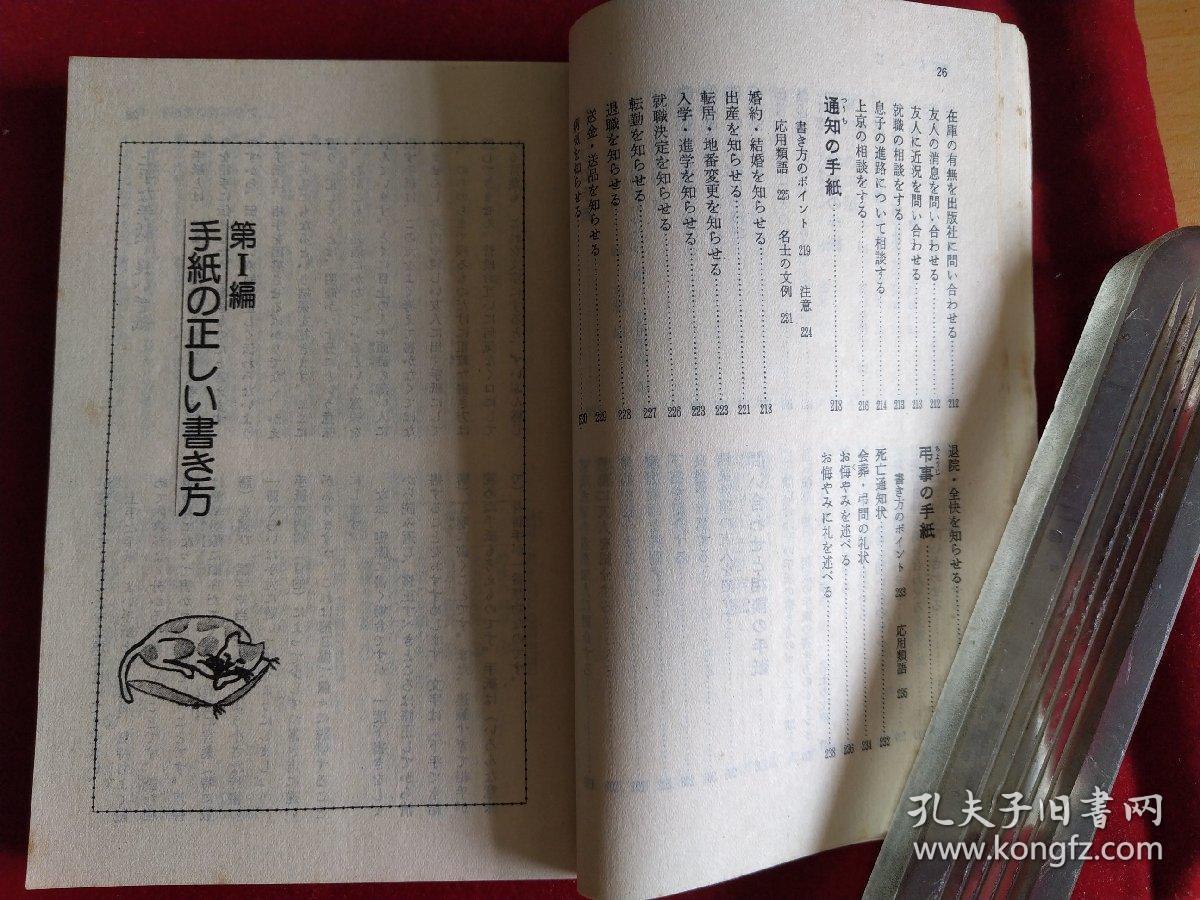 26
在庫の有無を出版社に問い合わせる 212
友人の消息を問い合わせる 212
友人に近況を問い合わせる 213
就職の相談をする 213
息子の進路について相談する 214
上京の相談をする 216
通知の手紙 218
書き方のポイント 219 注意 224
応用類語 225 名士の文例 231
婚約・結婚を知らせる 218
出産を知らせる 221
転居・地番変更を知らせる 223
入学・進学を知らせる 223
就職決定を知らせる 226
転勤を知らせる 227
退職を知らせる 228
送金・送品を知らせる 229
を知らせる 230
退院・全快を知らせる
弔事の手紙
書き方のポイント 233 応用類語 235
死亡通知状 232
会葬・弔問の礼状 234
お悔やみを述べる 236
お悔やみに礼を述べる 238
第Ⅰ編
手紙の正しい書き方
孔夫子旧書网
www.kongfz.com